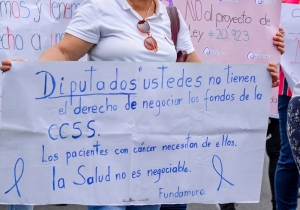 NO al proyecto
de Ley
# 20,923
Diputados ustedes no tienen
el derecho de negociar los fondos de la
CCSS.
Los pacientes con cáncer necesitan de ellos.
la Salud no es negociable.
Fundamuro.